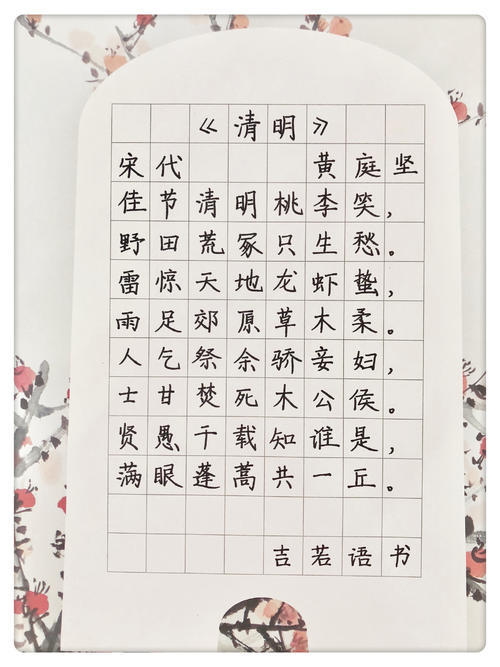 《清明》
宋代 黄庭坚
佳节清明桃李笑，
野田荒冢只生愁。
雷惊天地龙虾蛰，
雨足郊原草木柔。
人乞祭余骄妾妇，
士甘焚死木公侯。
贤愚千载知谁是，
满眼蓬蒿共一丘。
吉若语书